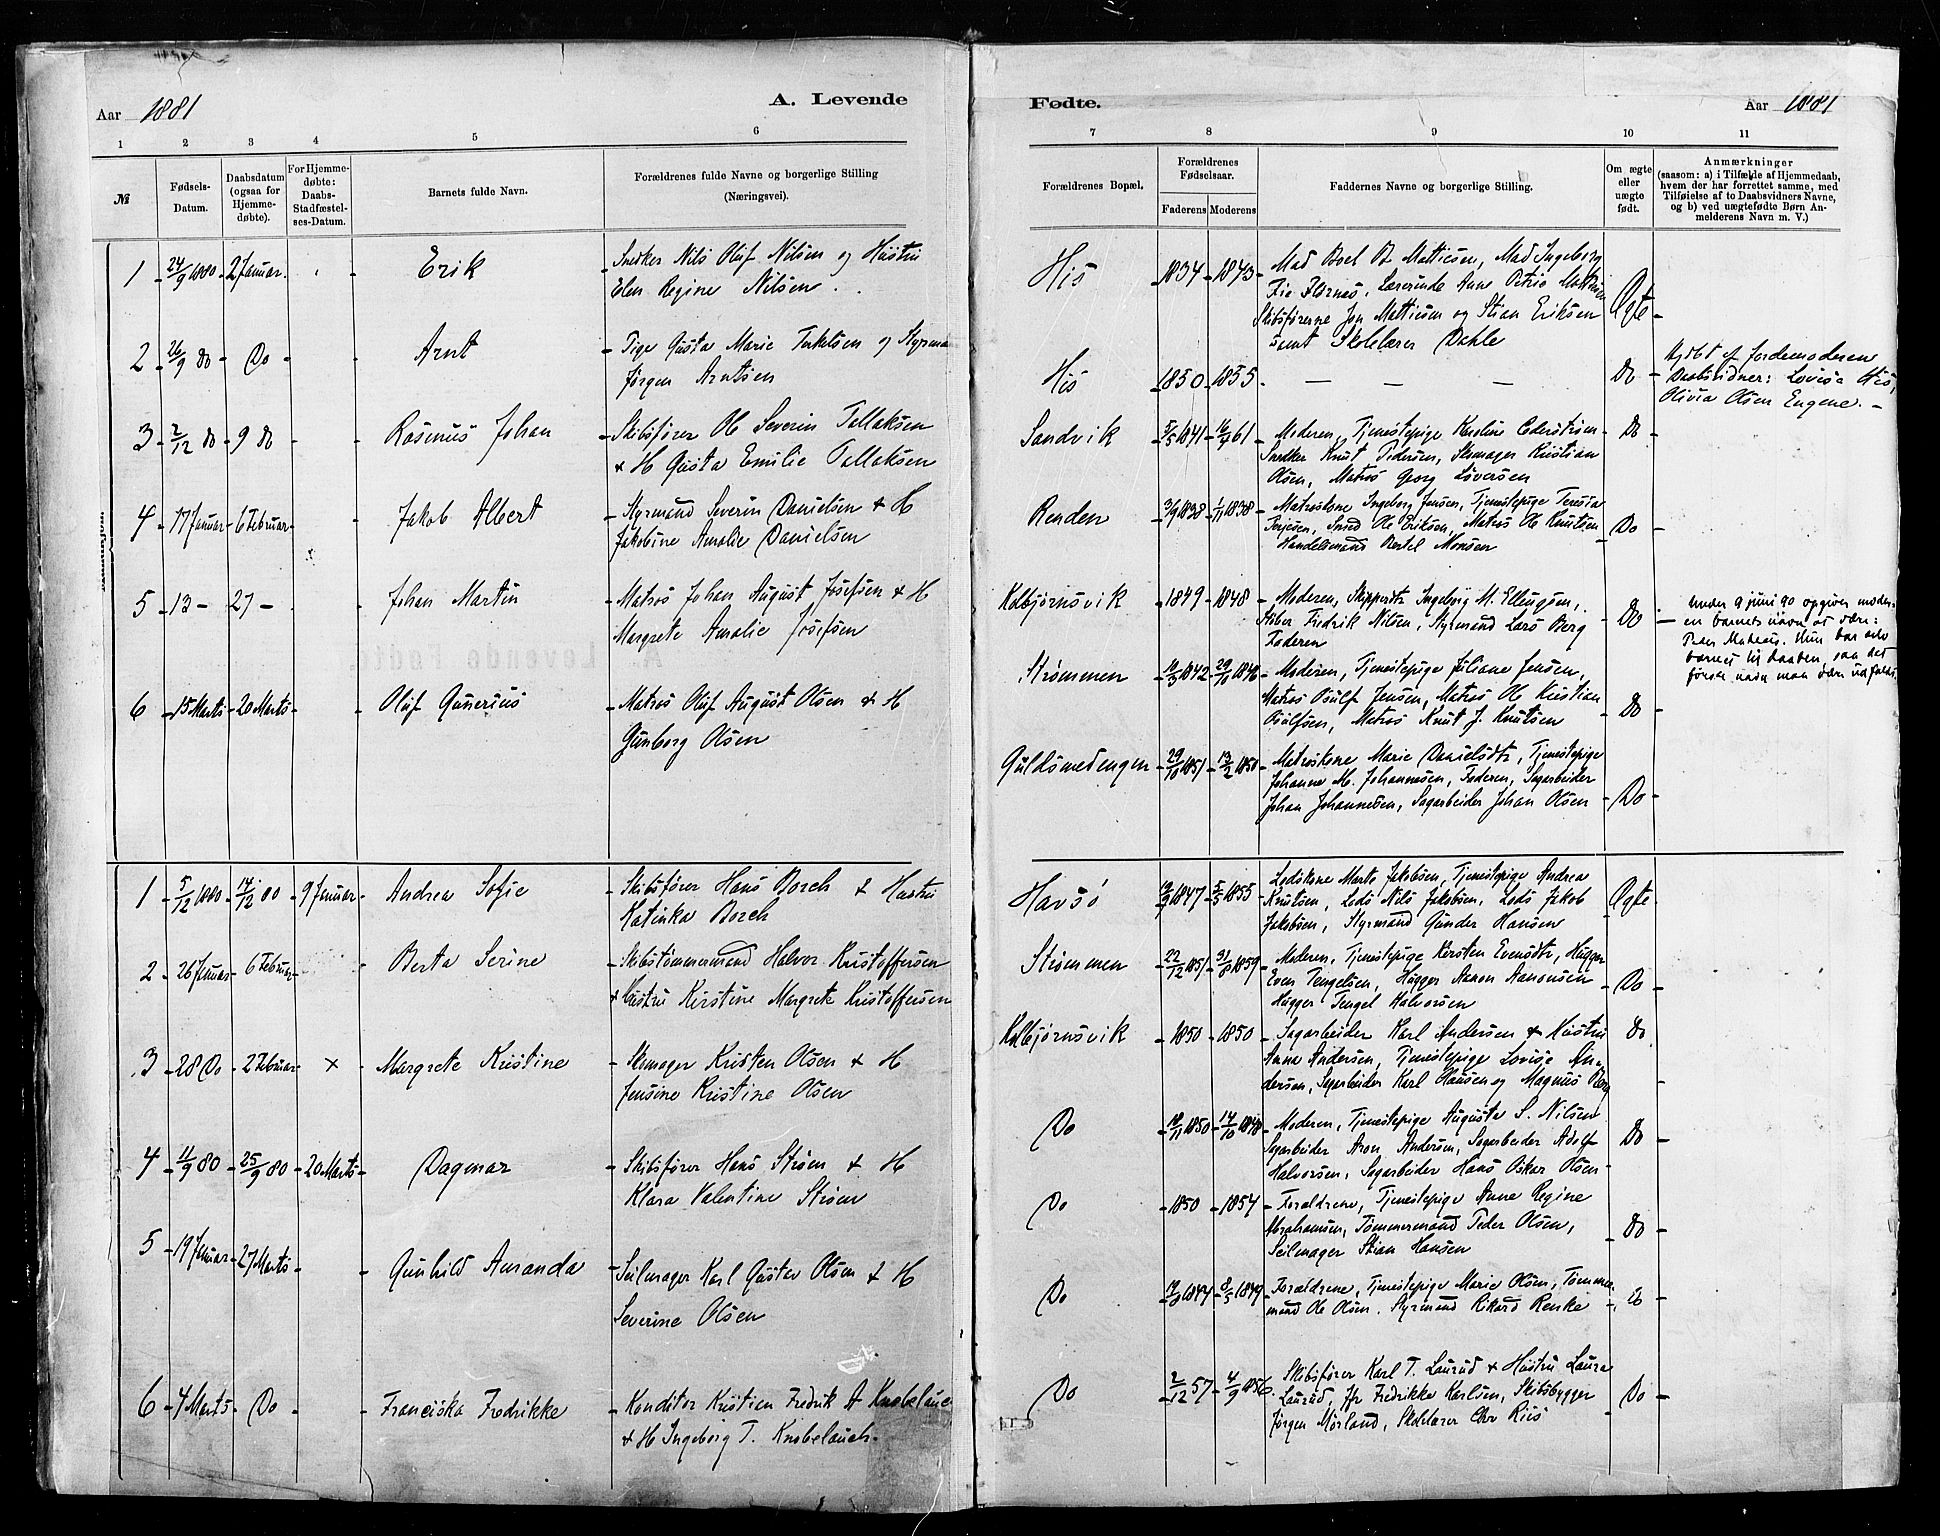 Aar 1881
A. Levende
1 2 3 4 5 6
№
Fødsels-
Datum.
Daabsdatum
(ogsaa for
Hjemme-
døbte).
For Hjemme-
døbte:
Daabs-
Stadfæstel-
ses-Datum.
Barnets fulde Navn.
Forældrenes fulde Navne og borgerlige Stilling
(Næringsvei).
1 24/9 1880 2 Januar Erik Snedker Nils Oluf Nilsen og Hustru
Elen Regine Nilsen
2 26/9 80 Do Arnt Pige Gusta Marie Terkelsen og Styrma
Jørgen Arntsen
3 2/12 80 9 do Rasmus Johan Skibsfører Ole Severin Tallaksen
& H Gusta Emilie Tallaksen
4 17 Januar 6 Februar Jakob Albert Styrmand Severin Danielsen & H
Jakobine Amalie Danielsen
5 13 - 27 - Johan Martin Matros Johan August Josefsen & H
Margrete Amalie Josefsen
6 15 Marts 20 Marts Oluf Gunerius Matros Oluf August Olsen & H
Gunborg Olsen
1 5/12 1880 14/12 80 9 Januar Andrea Sofie Skibsfører Hans Borch & Hustru
Katinka Borch
2 26 Januar 6 Februar Berta Serine Skibstømmermand Halvor Kristoffersen
& Hustru Kirstine Margrete Kristoffersen
3 28 Do 2 Februar × Margrete Kristine Skomager Kristen Olsen & H
Jensine Kristine Olsen
4 11/9 80 25/9 80 20 Marts Dagmar Skibsfører Hans Strøm & H
Klara Valentine Strøm
5 19 Januar 27 Marts Gunhild Amanda Seilmager Karl Gustav Olsen & H
Severine Olsen
6 4 Marts Do Franciska Fredrikke Konditor Kristian Fredrik A Knobelauch
& H Ingeborg T. Knobelauch.
Fødte.
Aar 1881
7 8 9 10 11
Forældrenes Bopæl.
Forældrenes
Fødselsaar.
Faderens Moderens
Faddernes Navne og borgerlige Stilling.
Om ægte
eller
uægte
født.
Anmærkninger
(saasom: a) i Tilfælde af Hjemmedaab,
hvem der har forrettet samme, med
Tilføielse af to Daabsvidners Navne,
og b) ved uægtefødte Børn An-
melderens Navn m. V.)
His 1834 1843 Mad Boel B Matticsen, Mad Ingeborg
Fie Lærerinde Anne Petrie
Skibsførerne Jon Matticsen og Stian Eriksen
samt Skolelærer Dahle
Ægte
His 1850 1855 — — — Do
Hjdbt af Jordemoderen
Daabsvidner: Lovise His,
Olivia Olsen Eugene. —
Sandvik 5/5 1841 61 Moderen, Tjenestepige Karoline Cederstrøm
Snedker Knut Pedersen, Skomager Kristian
Olsen, Matros Georg Løversen
Do
Renden 1838 1/11 1838 Matroskone Ingeborg Jensen, Tjenestepige Teresia
Terjesen, Smed Ole Eriksen, Matros Ole Knutsen
Handelsmand Bertel Monsen
Do
Kolbjørnsvik 1849 1848 Moderen, Skipperdtr Ingeborg M. Ellingsen,
Fredrik Nilsen, Styrmand Lars Berg
Faderen
Do
Under 9 juni 90 opgiver moder-
en barnets navn at være:
Peder Mathias. Hun bar selv
barnet til daaben, saa det
første navn maa være udfaldt.
Strømmen 10/3 1842 29/10 Moderen, Tjenestepige Juliane Jensen,
Matros Osulf Jensen, Matros Ole Kristian
Osulfsen, Matros Knut J. Knutsen
Do
Guldsmedengen 29/10 1851 13/2 1850 Matroskone Marie Danielsdtr, Tjenestepige
Johanne M. Johannesen, Faderen, Sagarbeider
Johan Johannesen, Sagarbeider Johan Olsen
Do
Havsø 19/9 1847 5/5 1855 Lodskone Marte Jakobsen, Tjenestepige Andrea
Knutsen, Lods Nils Jakobsen, Lods Jakob
Jakobsen, Styrmand Gunder Hansen
Ægte
Strømmen 22/12 1851 31/8 1859 Moderen, Tjenestepige Kirsten Evensdtr, Hugger
Even Tengelsen, Hugger Aanon Aanonsen
Hugger Tengel Halvorsen
Do
Kolbjørnsvik 1850 1850 Sagarbeider Karl Andersen & Hustru
Anne Andersen, Tjenestepige Lovise An-
dersen, Sagarbeider Karl Hansen og Magnus Berg
Do
Do 18/11 1850 14/10 1848 Moderen, Tjenestepige Augusta S. Nilsen
Sagarbeider Aron Andersen, Sagarbeider Adolf
Halvorsen, Sagarbeider Hans Oskar Olsen
Do
Do 1850 1854 Forældrene, Tjenestepige Anne Regine
Abrahamsen, Tømmermand Peder Olsen,
Seilmager Stian Hansen
Do
Do 1847 8/5 1849 Forældrene, Tjenestepige Marie Olsen, Tømmer
mand Ole Olsen. Styrmand Rikard Renke
Do
Do 2/12 57 4/9 1856 Skibsfører Karl T. Laurud & Hustru Laura
Laurud, Jfr Fredrikke Karlsen, Skibsbygger
Jørgen Mørland, Skolelærer Chr Riis
Do